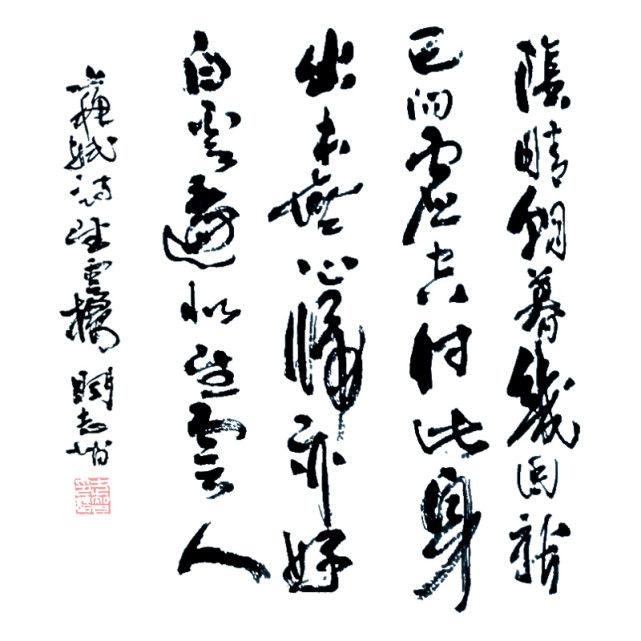 陰晴朝暮幾回新
已向虛空付此身
出本無心歸亦好
白雲還似望雲人
蘇軾詩望雲樓